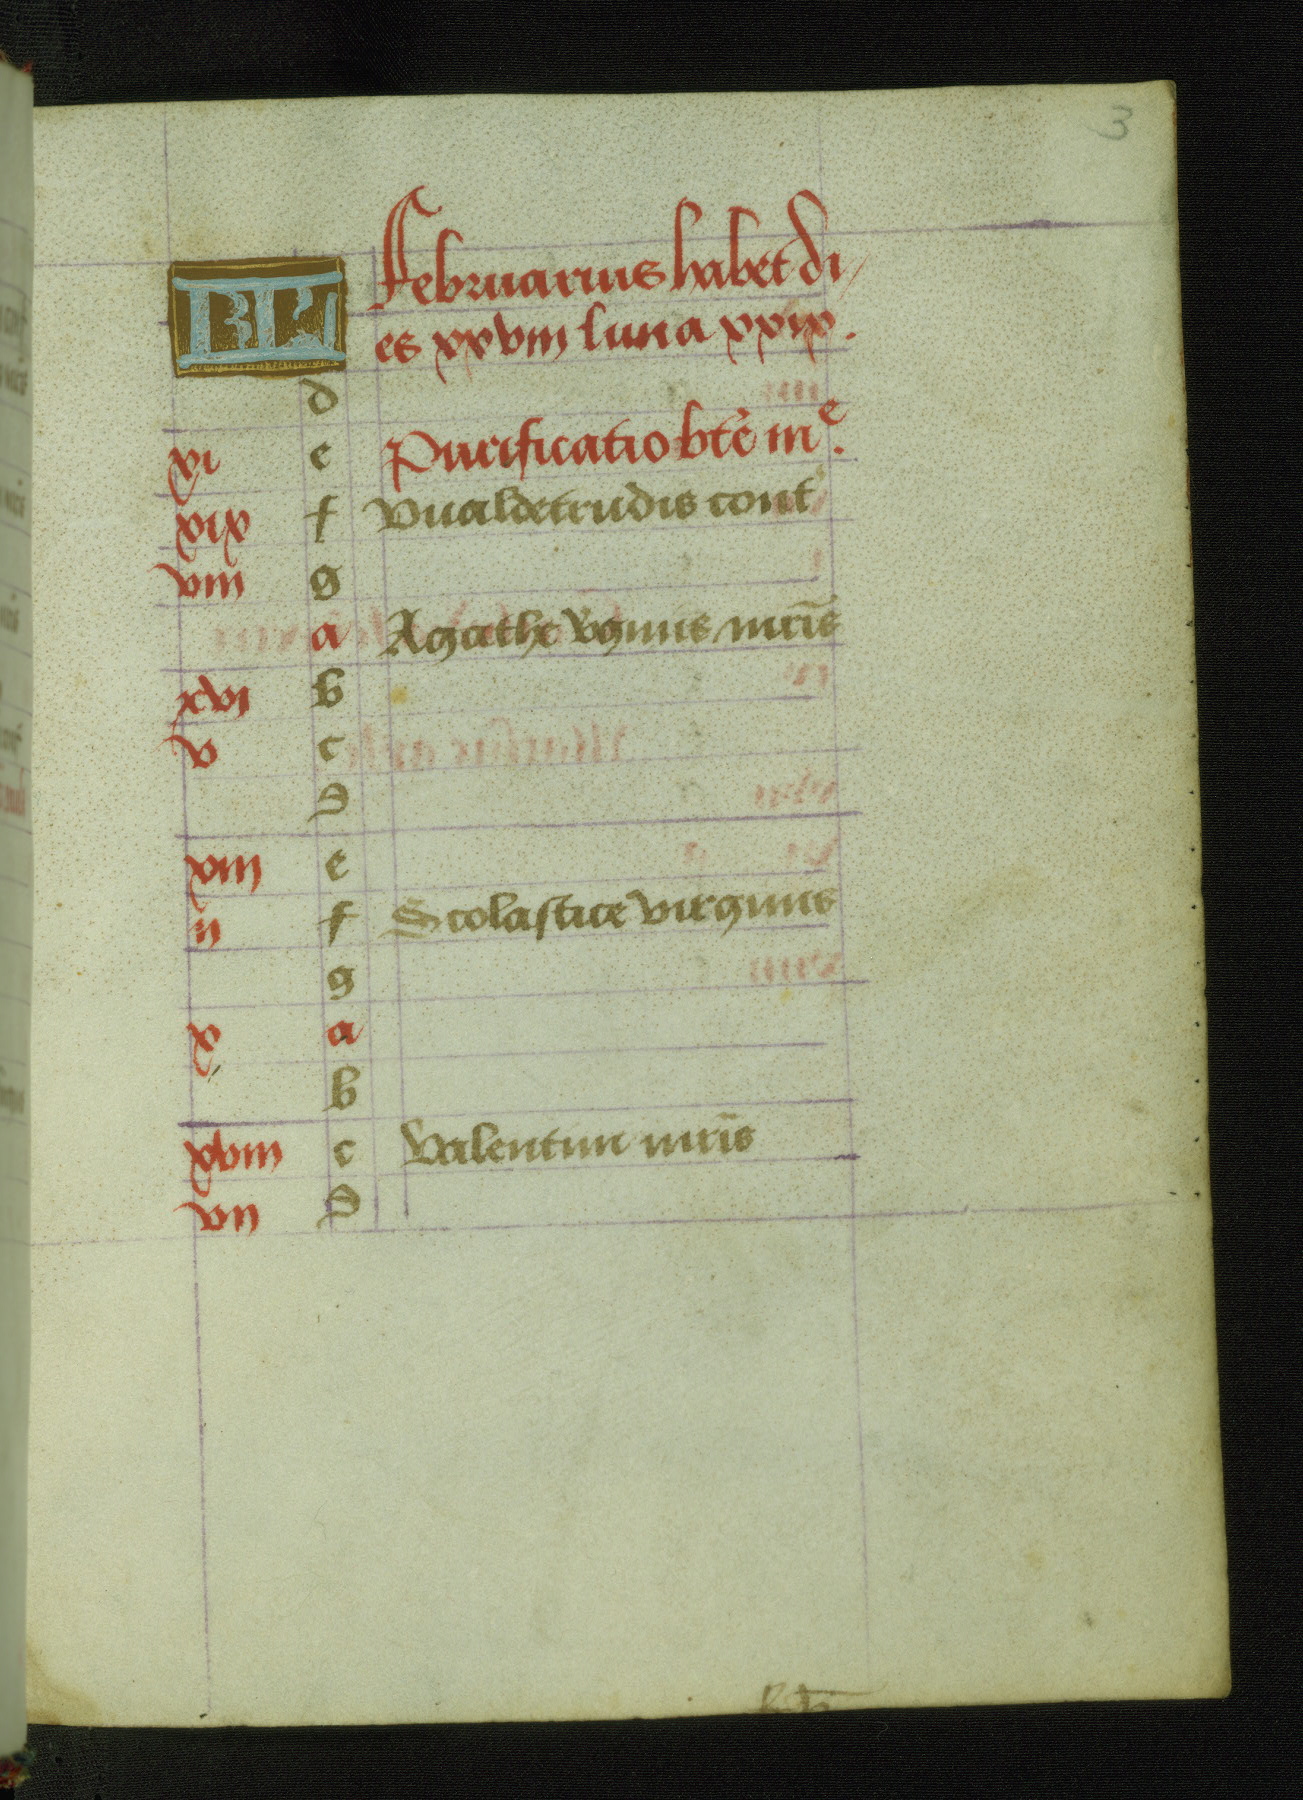 3
KL Februarius habet di/
es xxviii luna xxix.
d
xi e Purificatio bte me.
xix f Vualdetrudis conf
viii g
a Agathe v'ginis mr̄is
xvi b
v c
d
xiii e
ii f Scolastice virginis
g
x a
b
xviii c Valentini mr̄is
vii d